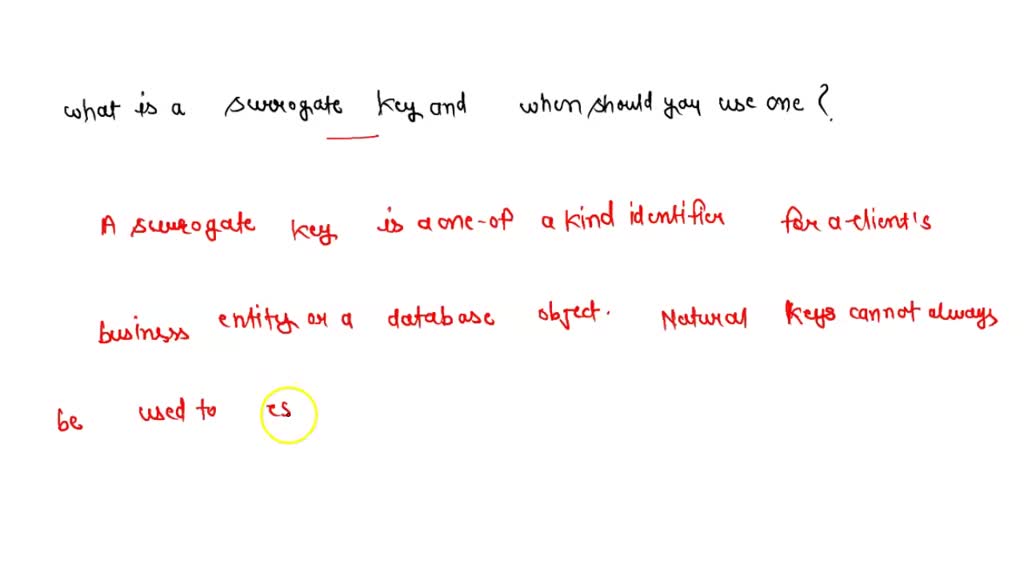 what is a surrogate key and when should you use one?
A surrogate key is a one-of a kind identifier for a client's
business entity or a database object. Natural keys cannot always
be used to es